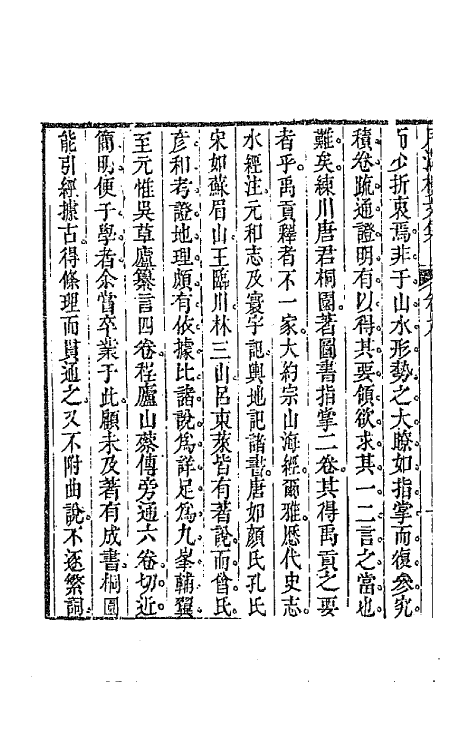 而少折衷焉非于山水形勢之大瞭如指掌而復參究
積卷疏通證明有以得其要領欲求其一二言之當也
難矣練川唐君桐園著圖書指掌二卷其得禹貢之要
者乎禹貢釋者不一家大約宗山海經爾雅歷代史志
水經注元和志及寰宇記輿地記諸書唐如顏氏孔氏
宋如蘇眉山王臨川林三山呂東萊皆有著說而曾氏
彥和考證地理頗有依據比諸說為詳足為九峯輔翼
至元惟吳草廬纂言四卷程廬山蔡傳旁通六卷切近
簡明便于學者余嘗卒業于此顧未及著有成書桐園
能引經據古得條理而貫通之又不附曲說不逐繁詞